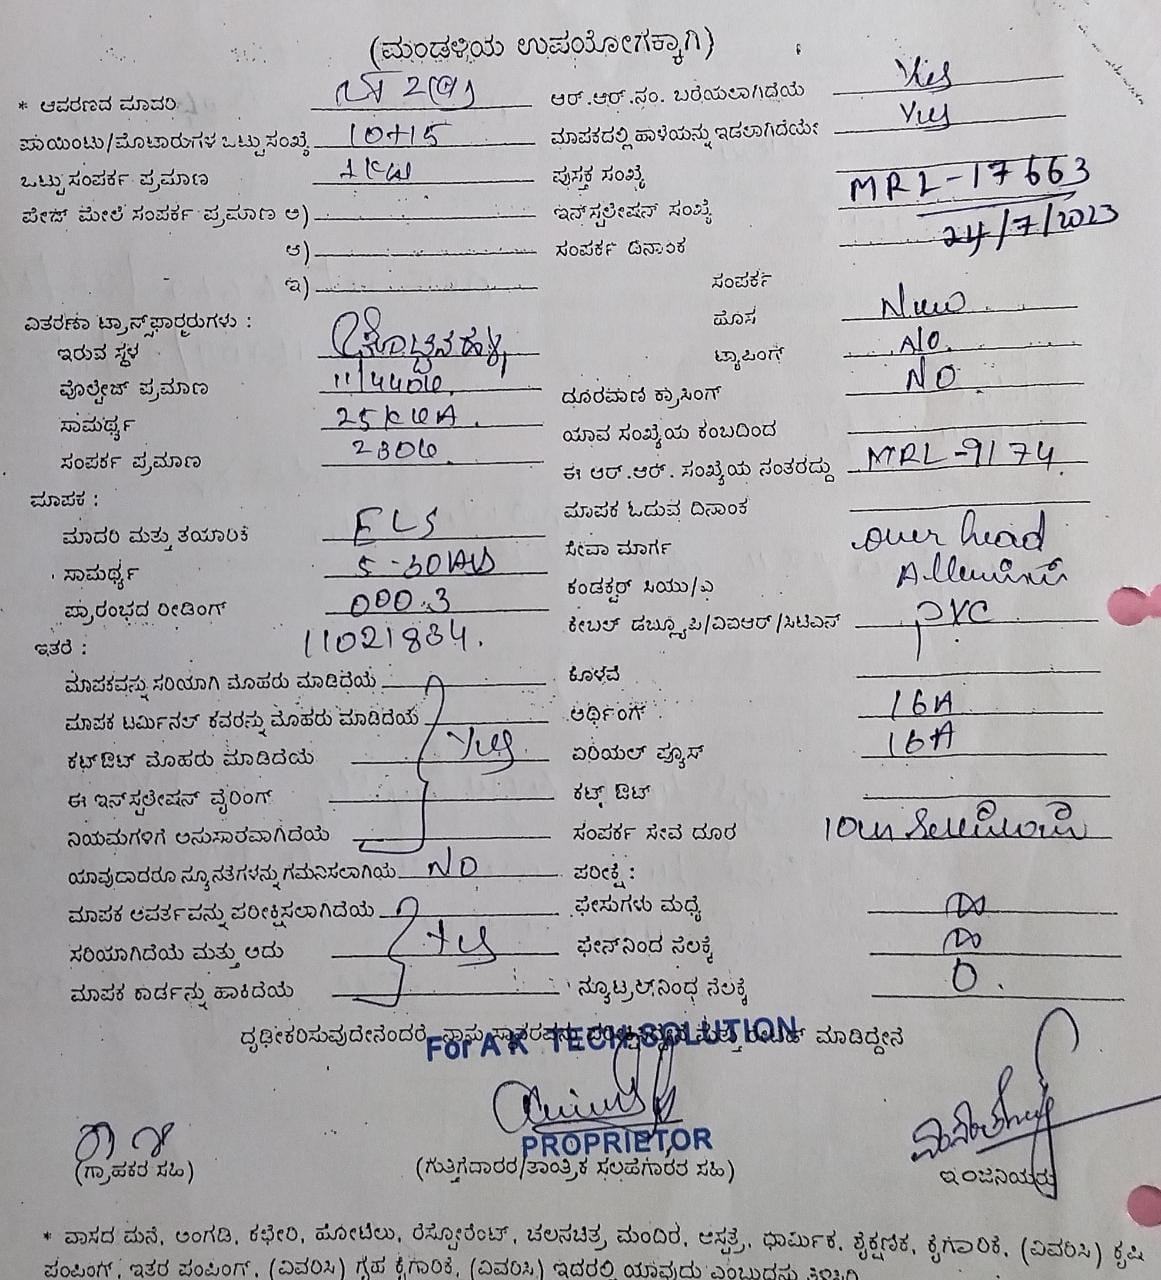 (ಮಂಡಳಿಯ ಉಪಯೋಗಕ್ಕಾಗಿ)
* ಆವರಣದ ಮಾದರಿ ಆರ್.ಆರ್.ನಂ. ಬರೆಯಲಾಗಿದೆಯೆ Yes
ಪಾಯಿಂಟು/ಮೊಟಾರುಗಳ ಒಟ್ಟು ಸಂಖ್ಯೆ 10+15 ಮಾಪಕದಲ್ಲಿ ಹಾಳೆಯನ್ನು ಇಡಲಾಗಿದೆಯೇ Yes
ಒಟ್ಟು ಸಂಪರ್ಕ ಪ್ರಮಾಣ 1KW ಪುಸ್ತಕ ಸಂಖ್ಯೆ
ಪೇಜ್ ಮೇಲೆ ಸಂಪರ್ಕ ಪ್ರಮಾಣ ಅ) ಇನ್‌ಸ್ಟಲೇಷನ್ ಸಂಖ್ಯೆ MRL-17663
ಆ) ಸಂಪರ್ಕ ದಿನಾಂಕ 24/7/2023
ಇ) ಸಂಪರ್ಕ
ವಿತರಣಾ ಟ್ರಾನ್ಸ್‌ಫಾರ್‍ಮರುಗಳು : ಹೊಸ New
ಇರುವ ಸ್ಥಳ ಟ್ಯಾಪಿಂಗ್ NO.
ವೊಲ್ಟೇಜ್ ಪ್ರಮಾಣ 11/440V. ದೂರವಾಣಿ ಕ್ರಾಸಿಂಗ್ NO
ಸಾಮರ್ಥ್ಯ 25KVA. ಯಾವ ಸಂಖ್ಯೆಯ ಕಂಬದಿಂದ
ಸಂಪರ್ಕ ಪ್ರಮಾಣ 230V. ಈ ಆರ್.ಆರ್. ಸಂಖ್ಯೆಯ ನಂತರದ್ದು MRL-9174.
ಮಾಪಕ : ಮಾಪಕ ಓದುವ ದಿನಾಂಕ
ಮಾದರಿ ಮತ್ತು ತಯಾರಿಕೆ ELS ಸೇವಾ ಮಾರ್ಗ over head
ಸಾಮರ್ಥ್ಯ ಕಂಡಕ್ಟರ್ ಸಿಯು/ಎ
ಪ್ರಾರಂಭದ ರೀಡಿಂಗ್ 000.3 ಕೇಬಲ್ ಡಬ್ಲ್ಯೂಪಿ/ವಿಐಆರ್/ಸಿಟಿಎಸ್ PVC
ಇತರೆ : 11021834.
ಮಾಪಕವನ್ನು ಸರಿಯಾಗಿ ಮೊಹರು ಮಾಡಿದೆಯೆ ಕೊಳವೆ
ಮಾಪಕ ಟರ್ಮಿನಲ್ ಕವರನ್ನು ಮೊಹರು ಮಾಡಿದೆಯೆ ಅರ್ಥಿಂಗ್ 16A
ಕಟ್‌ಔಟ್ ಮೊಹರು ಮಾಡಿದೆಯೆ Yes ಏರಿಯಲ್ ಫ್ಯೂಸ್ 16A
ಈ ಇನ್‌ಸ್ಟಲೇಷನ್ ವೈರಿಂಗ್ ಕಟ್ಟ್ ಔಟ್
ನಿಯಮಗಳಿಗೆ ಅನುಸಾರವಾಗಿದೆಯೆ ಸಂಪರ್ಕ ಸೇವೆ ದೂರ
ಯಾವುದಾದರೂ ನ್ಯೂನತೆಗಳನ್ನು ಗಮನಿಸಲಾಗಿಯೆ NO ಪರೀಕ್ಷೆ :
ಮಾಪಕ ಆವರ್ತವನ್ನು ಪರೀಕ್ಷಿಸಲಾಗಿದೆಯೆ ಫೇಸುಗಳು ಮಧ್ಯೆ ∞
ಸರಿಯಾಗಿದೆಯೆ ಮತ್ತು ಅದು Yes ಫೇಸ್‌ನಿಂದ ನೆಲಕ್ಕೆ ∞
ಮಾಪಕ ಕಾರ್ಡನ್ನು ಹಾಕಿದೆಯೆ ನ್ಯೂಟ್ರಲ್‌ನಿಂಧ ನೆಲಕ್ಕೆ 0.
ದೃಢೀಕರಿಸುವುದೇನೆಂದರೆ, ನಾನು ಮಾಡಿದ್ದೇನೆ
For A K TECH SOLUTION
PROPRIETOR
(ಗ್ರಾಹಕರ ಸಹಿ) (ಗುತ್ತಿಗೆದಾರರ/ತಾಂತ್ರಿಕ ಸಲಹೆಗಾರರ ಸಹಿ) ಇಂಜನಿಯರು
* ವಾಸದ ಮನೆ, ಅಂಗಡಿ, ಕಛೇರಿ, ಹೋಟೆಲು, ರೆಸ್ಟೋರೆಂಟ್, ಚಲನಚಿತ್ರ ಮಂದಿರ, ಆಸ್ಪತ್ರೆ, ಧಾರ್ಮಿಕ, ಶೈಕ್ಷಣಿಕ, ಕೈಗಾರಿಕೆ, (ವಿವರಿಸಿ) ಕೃಷಿ
ಪಂಪಿಂಗ್, ಇತರ ಪಂಪಿಂಗ್, (ವಿವರಿಸಿ) ಗೃಹ ಕೈಗಾರಿಕೆ, (ವಿವರಿಸಿ) ಇದರಲ್ಲಿ ಯಾವುದು ಎಂಬುದನ್ನು ತಿಳಿಸಿರಿ